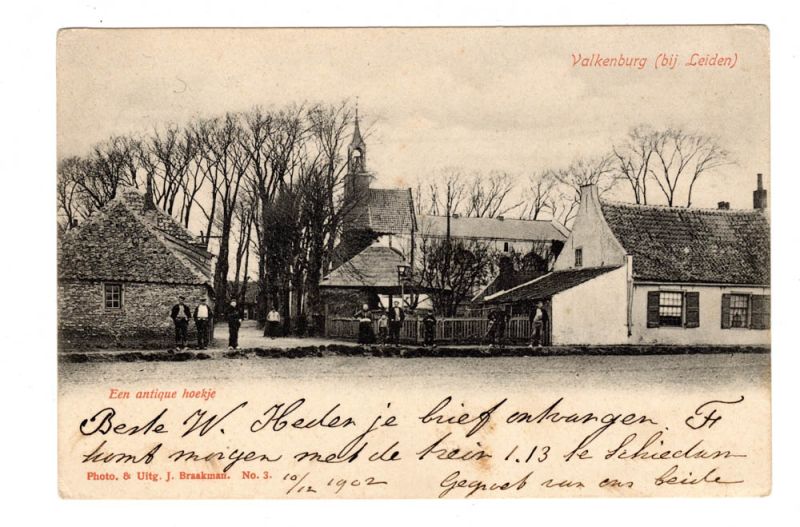 Valkenburg (bij Leiden)
Een antique hoekje
Beste W. Heden je brief ontvangen. F
komt morgen met de trein 1.13 te Schiedam
Photo. & Uitg. J. Braakman. No. 3. 10/12 1902 Gegroet van ons beide